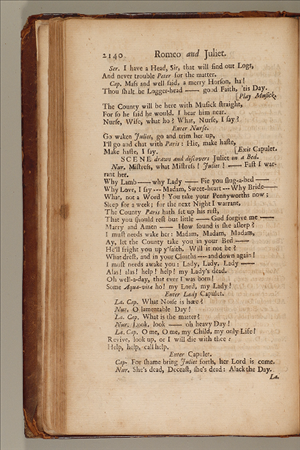 2140 Romeo and Juliet.
Ser. I have a Head, Sir, that will find out Logs,
And never trouble Peter for the matter.
Cap. Mass and well said, a merry Horson, ha!
Thou shalt be Logger-head —— good Faith, 'tis Day.
[Play Musick.
The County will be here with Musick straight,
For so he said he would. I hear him near.
Nurse, Wife, what ho? What, Nurse, I say?
Enter Nurse.
Go waken Juliet, go and trim her up,
I'll go and chat with Paris: Hie, make haste,
Make haste, I say. [Exit Capulet.
SCENE draws and discovers Juliet on a Bed.
Nur. Mistress, what Mistress! Juliet! —— Fast I war-
rant her.
Why Lamb —— why Lady —— Fie you slug-a-bed ——
Why Love, I say --- Madam, Sweet-heart --- Why Bride ---
What, not a Word? You take your Pennyworths now;
Sleep for a week; for the next Night I warrant,
The County Paris hath set up his rest,
That you should rest but little —— God forgive me ——
Marry and Amen —— How sound is she asleep?
I must needs wake her: Madam, Madam, Madam,
Ay, let the County take you in your Bed ——
He'll fright you up y'faith. Will it not be?
What drest, and in your Cloaths --- and down again!
I must needs awake you: Lady, Lady, Lady ——
Alas! alas! help! help! my Lady's dead.
Oh well-a-day, that ever I was born!
Some Aqua-vitæ ho! my Lord, my Lady!
Enter Lady Capulet.
La. Cap. What Noise is here?
Nur. O lamentable Day!
La. Cap. What is the matter?
Nur. Look, look —— oh heavy Day!
La. Cap. O me, O me, my Child, my only Life!
Revive, look up, or I will die with thee:
Help, help, call help.
Enter Capulet.
Cap. For shame bring Juliet forth, her Lord is come.
Nur. She's dead, Deceast, she's dead: Alack the Day.
La.